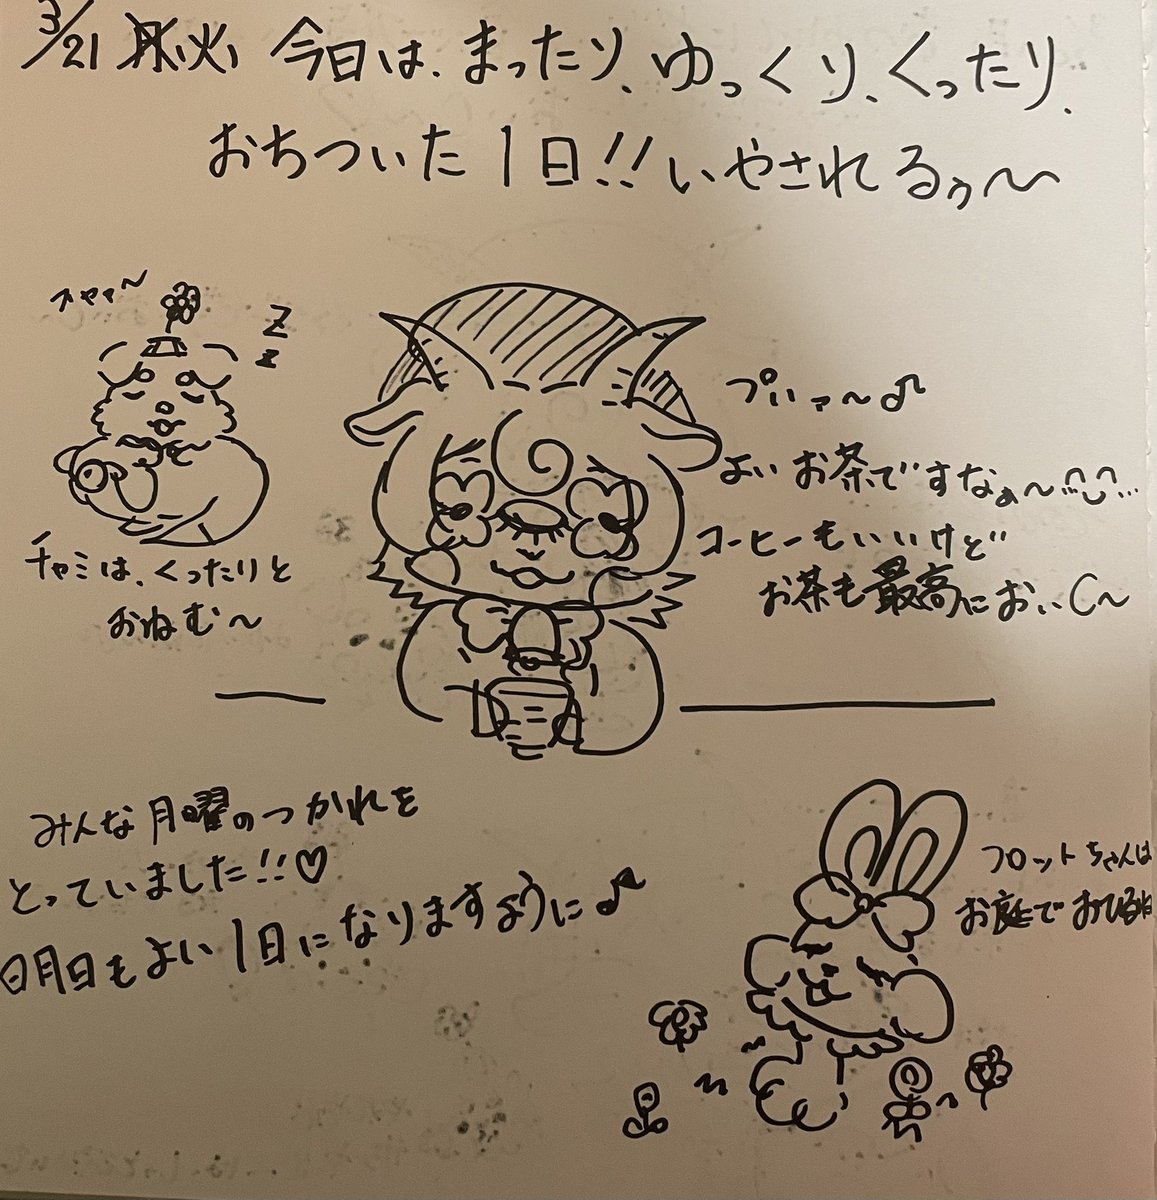 3/21 火 今日は、まったり、ゆっくり、くったり、
おちついた1日!!いやされるぅ〜
スヤァ〜
Z
z
プハァ〜♪
よいお茶ですなぁ〜
コーヒーもいいけど
お茶も最高においC〜
チャミは、くったりと
おねむ〜
みんな月曜のつかれを
とっていました!!♡
明日もよい1日になりますように♪
フロットちゃんは
お庭でおひるね